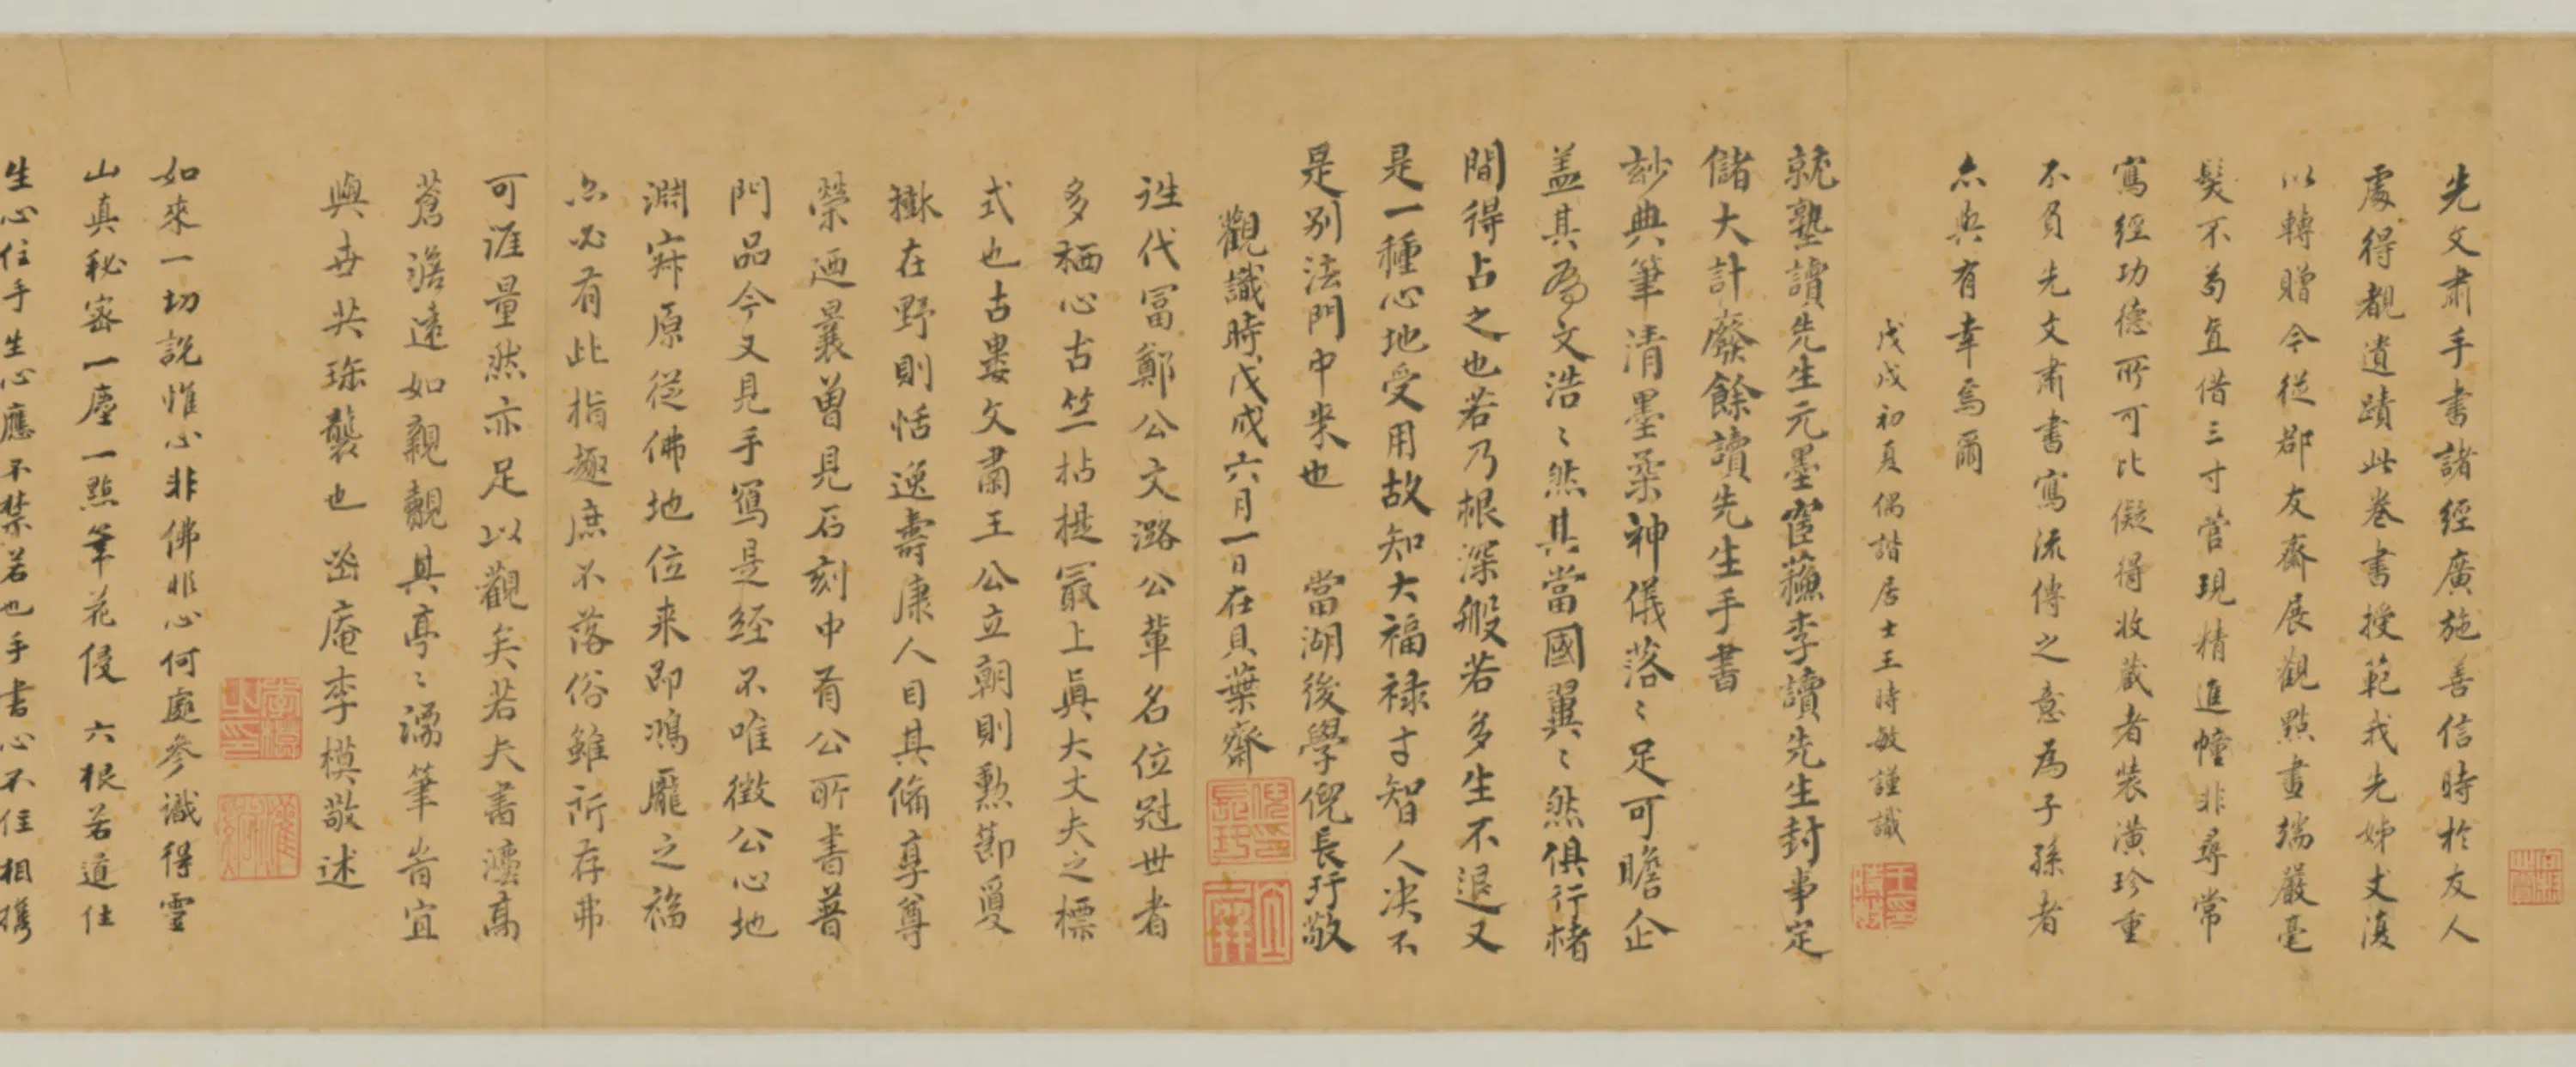 先文肅手書諸經廣施善信時於友人
處得覩遺蹟此卷書授範我先姊丈後
以轉贈今從郡友齋展觀點畫端嚴毫
髮不苟直借三寸管現精進幢非尋常
寫經功德所可比儗得收藏者裝潢珍重
不負先文肅書寫流傳之意為子孫者
亦與有幸焉爾
戊戌初夏偶諧居士王時敏謹識
就塾讀先生元墨窗蘓李讀先生封事定
儲大計廢餘讀先生手書
玅典筆清墨柔神儀落〻足可瞻企
盖其為文浩〻然其當國翼〻然俱行楮
間得占之也若乃根深般若多生不退又
是一種心地受用故知大福禄才智人决不
是别法門中来也 當湖後學倪長玗敬
觀識時戊戌六月一日在貝葉齋
往代冨鄭公文潞公輩名位冠世者
多栖心古竺拈提最上眞大丈夫之標
式也古婁文肅王公立朝則勲莭夐
在野則恬逸壽康人目其備享尊
榮迺曩曽見石刻中有公所書普
門品今又見手寫是经不唯徵公心地
淵㝛原從佛地位来即鴻龐之福
亦必有此指趣庶不落俗雖所存弗
可涯量然亦足以觀矣若夫書灋高
蒼澹遠如親覿其亭〻濡筆者宜
與世共珎襲也 㽅庵李模敬述
如來一切説惟心非佛非心何處參識得靈
山真秘密一塵一點筆花侵 六根若道住
生心住手生心應不禁若也手書心不住相携